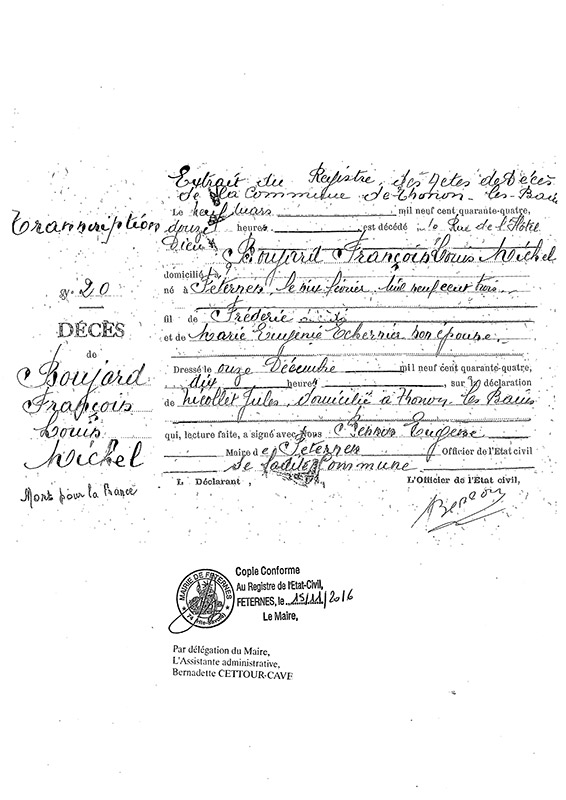 Extrait du Registre des Actes de Décès
de la Commune de Thonon-les Bains
Transcription
Le neuf Mars mil neuf cent quarante-quatre,
douze heures est décédé 10 Rue de l'Hôtel
Dieu Boujard François Louis Michel
domicilié à
né à Feternes, le six février mil neuf cent trois
fil de Fréderic
et de Marie Eugénie Echernier son épouse.
N° 20
DÉCÈS
de
Boujard
François
Louis
Michel
Mort pour la France
Dressé le onze Décembre mil neuf cent quarante-quatre,
dix heures, sur la déclaration
de Nicollet Jules, domicilié à Thonon les Bains
qui, lecture faite, a signé avec Nous Eugène
Maire de Feternes Officier de l'Etat civil
de ladite Commune
L Déclarant, L'Officier de l'Etat civil,
MAIRIE DE FETERNES
Copie Conforme
Au Registre de l'Etat-Civil,
FETERNES, le 15/11/2016
Le Maire,
Par délégation du Maire,
L'Assistante administrative,
Bernadette CETTOUR-CAVE